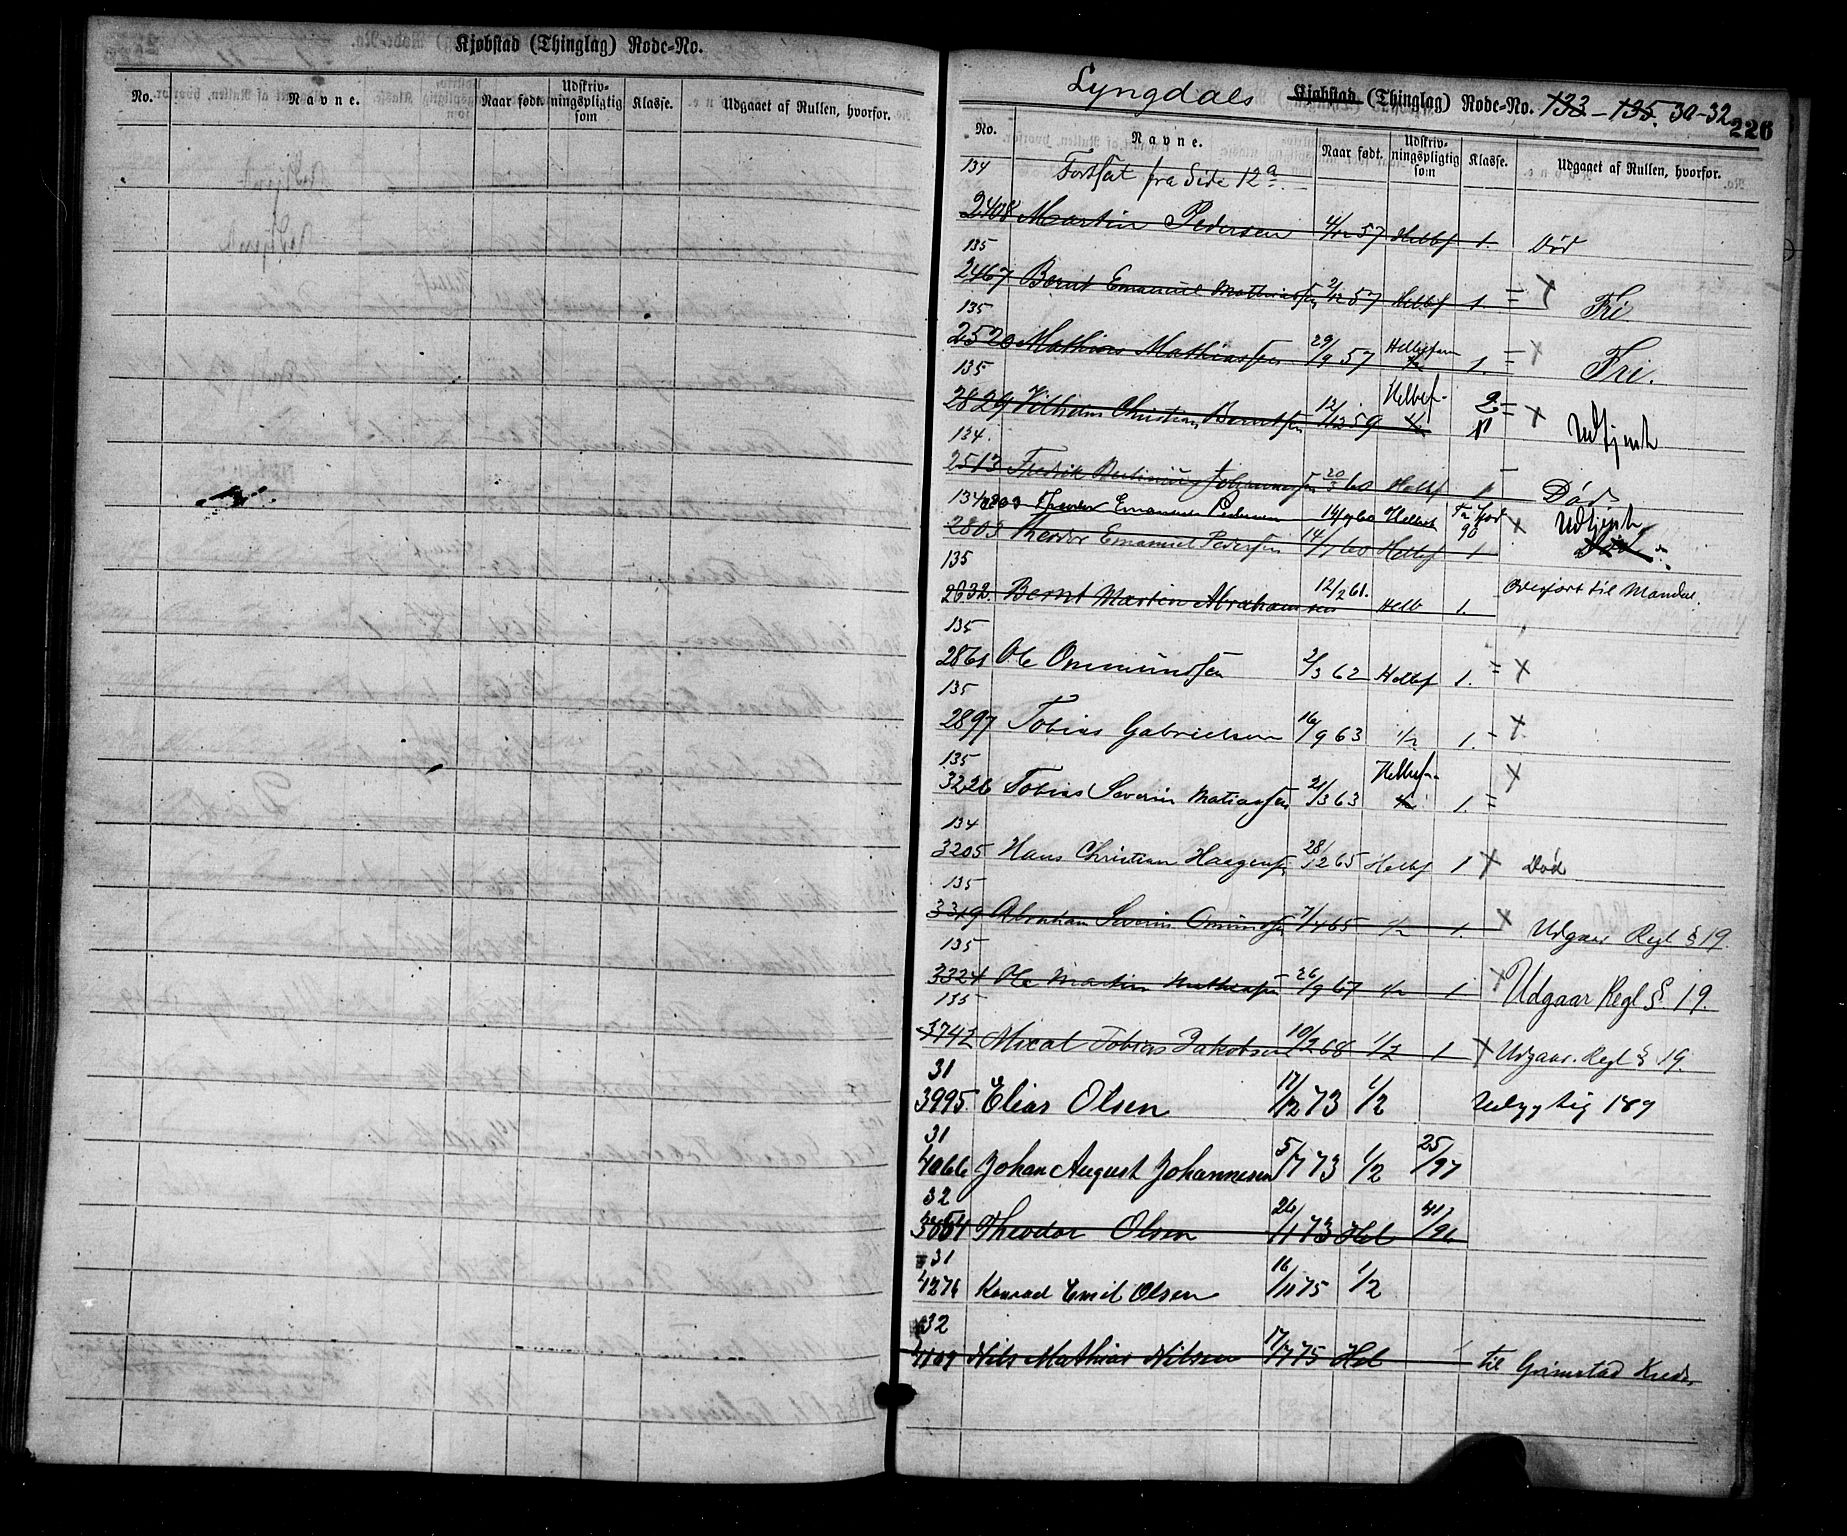 Kjøbstad (Thinglag) Rode-No.
No. Navne. Naar født. Udskrivningspligtig som Klasse. Udgaaet af Rullen, hvorfor.
Lyngdals Kjøbstad (Thinglag) Rode-No. 133-135. 30-32 226
No. Navne. Naar født. Udskrivningspligtig som Klasse. Udgaaet af Rullen, hvorfor.
134 Fortsat fra Side 12a
2408 Martin Pedersen 4/12 57 Helbf 1. Død
135
2467 Bernt Emanuel Mathiassen 2/12 57 Helbf 1. = X Fri.
135
2520 Mathias Mathiassen 29/9 57 Helbefarn 1. = X Fri.
135
2829 Vilhelm Christian Berntsen 12/12 59 Helbef. 2 = X Udtjent
134.
2513 Fredrik Johannessen 20/3 60 Helbf 1 Død
134 2803 Theodor Emanuel Pedersen 14/1 60 Helbef. 90 X Udtjent
2803 Theodor Emanuel Pedersen 14/1 60 Helbf 1 Død
135
2032. Bernt Martin Abrahamsen 12/2 61. Helb 1. Overført til Mandal.
135
2861 Ole Ommundsen 2/3 62 Helbf 1. = X
135
2897 Tobias Gabrielsen 16/9 63 1/2 1. - X
135
3226 Tobias Severin Matiassen 21/3 63 Helbef. 1. = X
134
3205 Hans Christian Haagensen 28/12 65 Helbf 1 X Død
135
3319 Abraham Severin Omundsen 7/4 65 1/2 1. X Udgaar Regl § 19.
135
3324 Ole Martin Mathiassen 26/9 67 1/2 1 X Udgaar Regl §. 19.
135
3742 Mical Tobias Jakobsen 10/2 68 1/2 1 X Udgaar. Regl § 19.
31
3995 Elias Olsen 17/12 73 1/2 Udygtig 189
31
4066 Johan August Johannesen 5/7 73 1/2 25/97
32
3854 Theodor Olsen 26/1 73 Hel 41/96
31
4276 Konrad Emil Olsen 16/11 75 1/2
32
4109 Nils Mathias Nilsen 17/7 75 Hel til Grimstad Kreds.